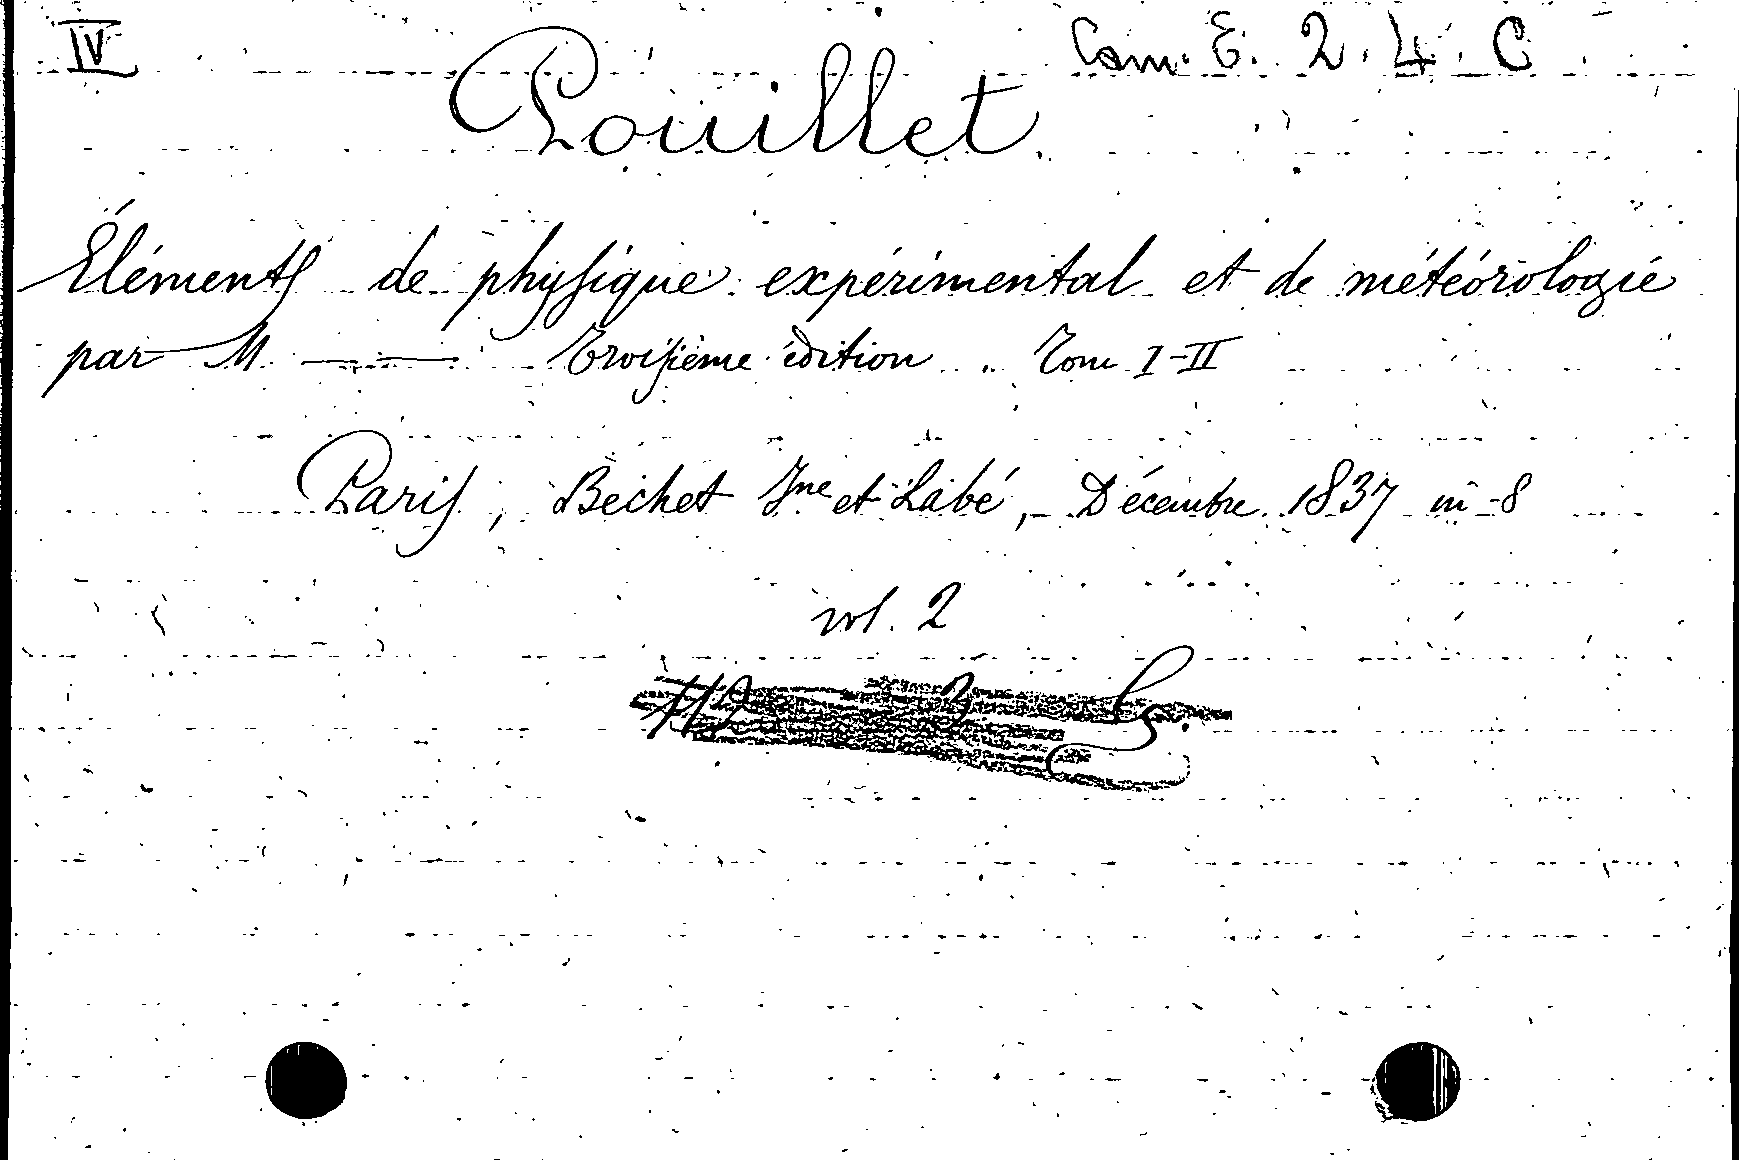 IV Cam. E. 2. 4. C
Pouillet
Éléments de physique expérimental et de météorologie
par M. —— Troisième édition. Tom I-II
Paris, Bechet Jne et Labé, Décembre 1837 in-8
vol. 2